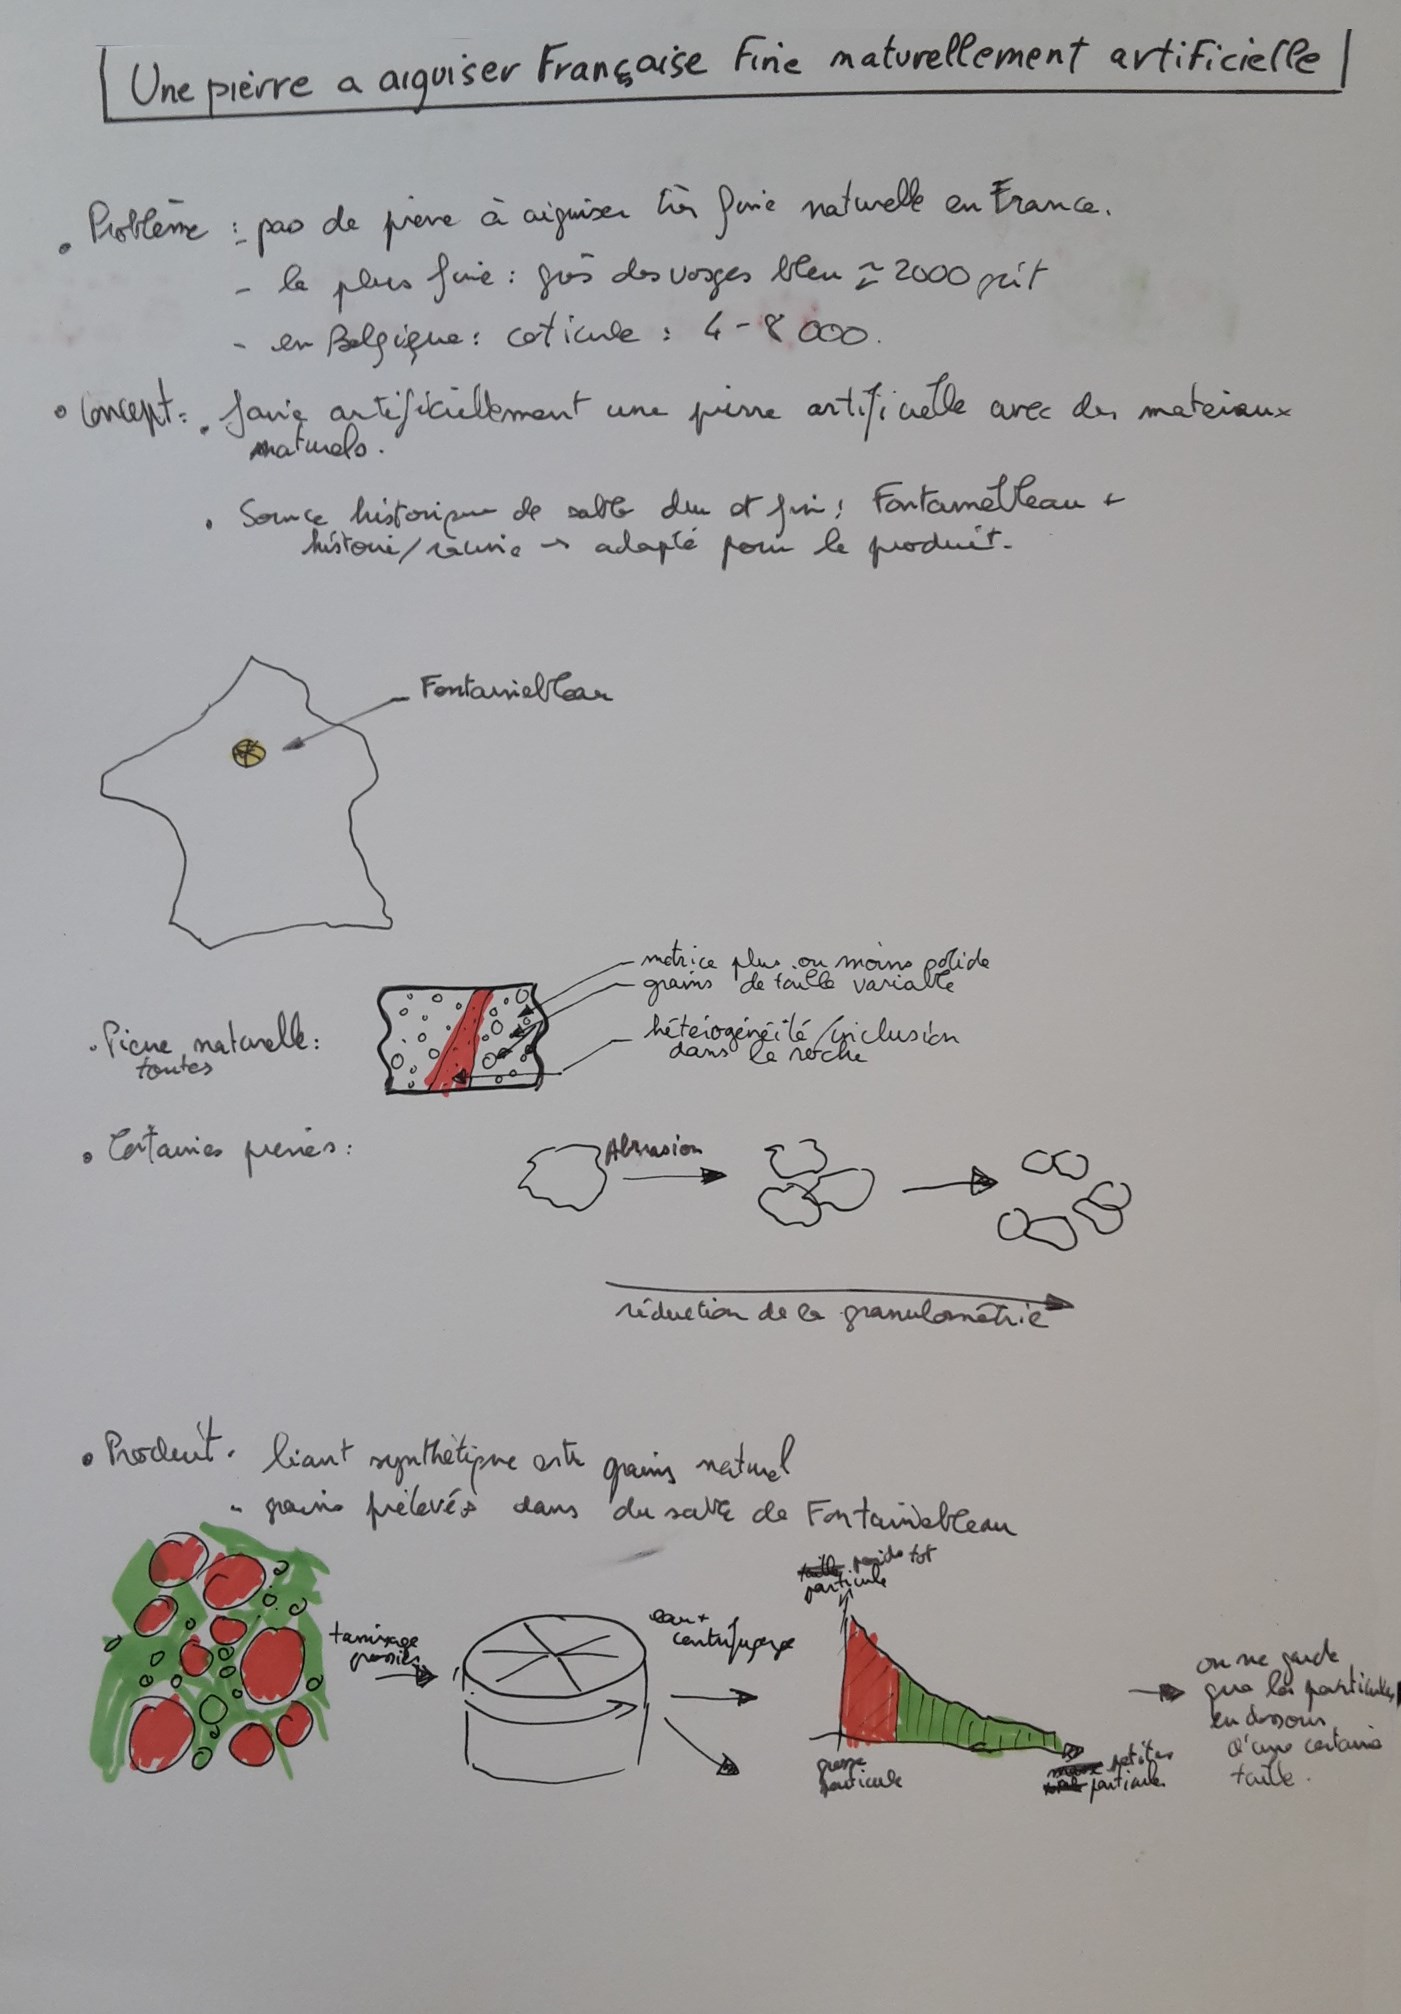 Une pierre a aiguiser Française Fine naturellement artificielle
• Problème : - pas de pierre à aiguiser très fine naturelle en France.
- la plus fine : grès des vosges bleu ≃ 2000 grit
- en Belgique : coticule : 4 - 8 000.
• Concept : • faire artificiellement une pierre artificielle avec des materiaux
naturels.
• Source historique de sable dur et fin : Fontainebleau +
histoire/ → adapté pour le produit.
Fontainebleau
matrice plus ou moins solide
grains de taille variable
• Pierre naturelle :
toutes
hétérogénéité/inclusion
dans la roche
• Certaines pierres :
Abrasion
réduction de la granulométrie
• Produit • liant synthétique grains naturel
- grains prélevés dans du sable de Fontainebleau
poids tot
particule
tamisage
grossier
eau +
centrifugeuse
on ne garde
que les particules
en dessous
d'une certaine
taille.
grosse
particule
petites
particules